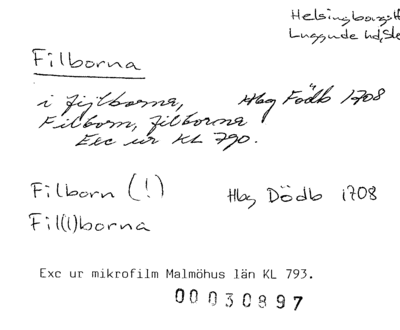 Helsingborgs H
Luggude hd, Sk
Filborna
i fijlborna, Hbg Födb 1708
Filborn, filborna
Exc ur KL 790.
Filborn (!) Hbg Dödb 1708
Fil(l)borna
Exc ur mikrofilm Malmöhus län KL 793.
00030897